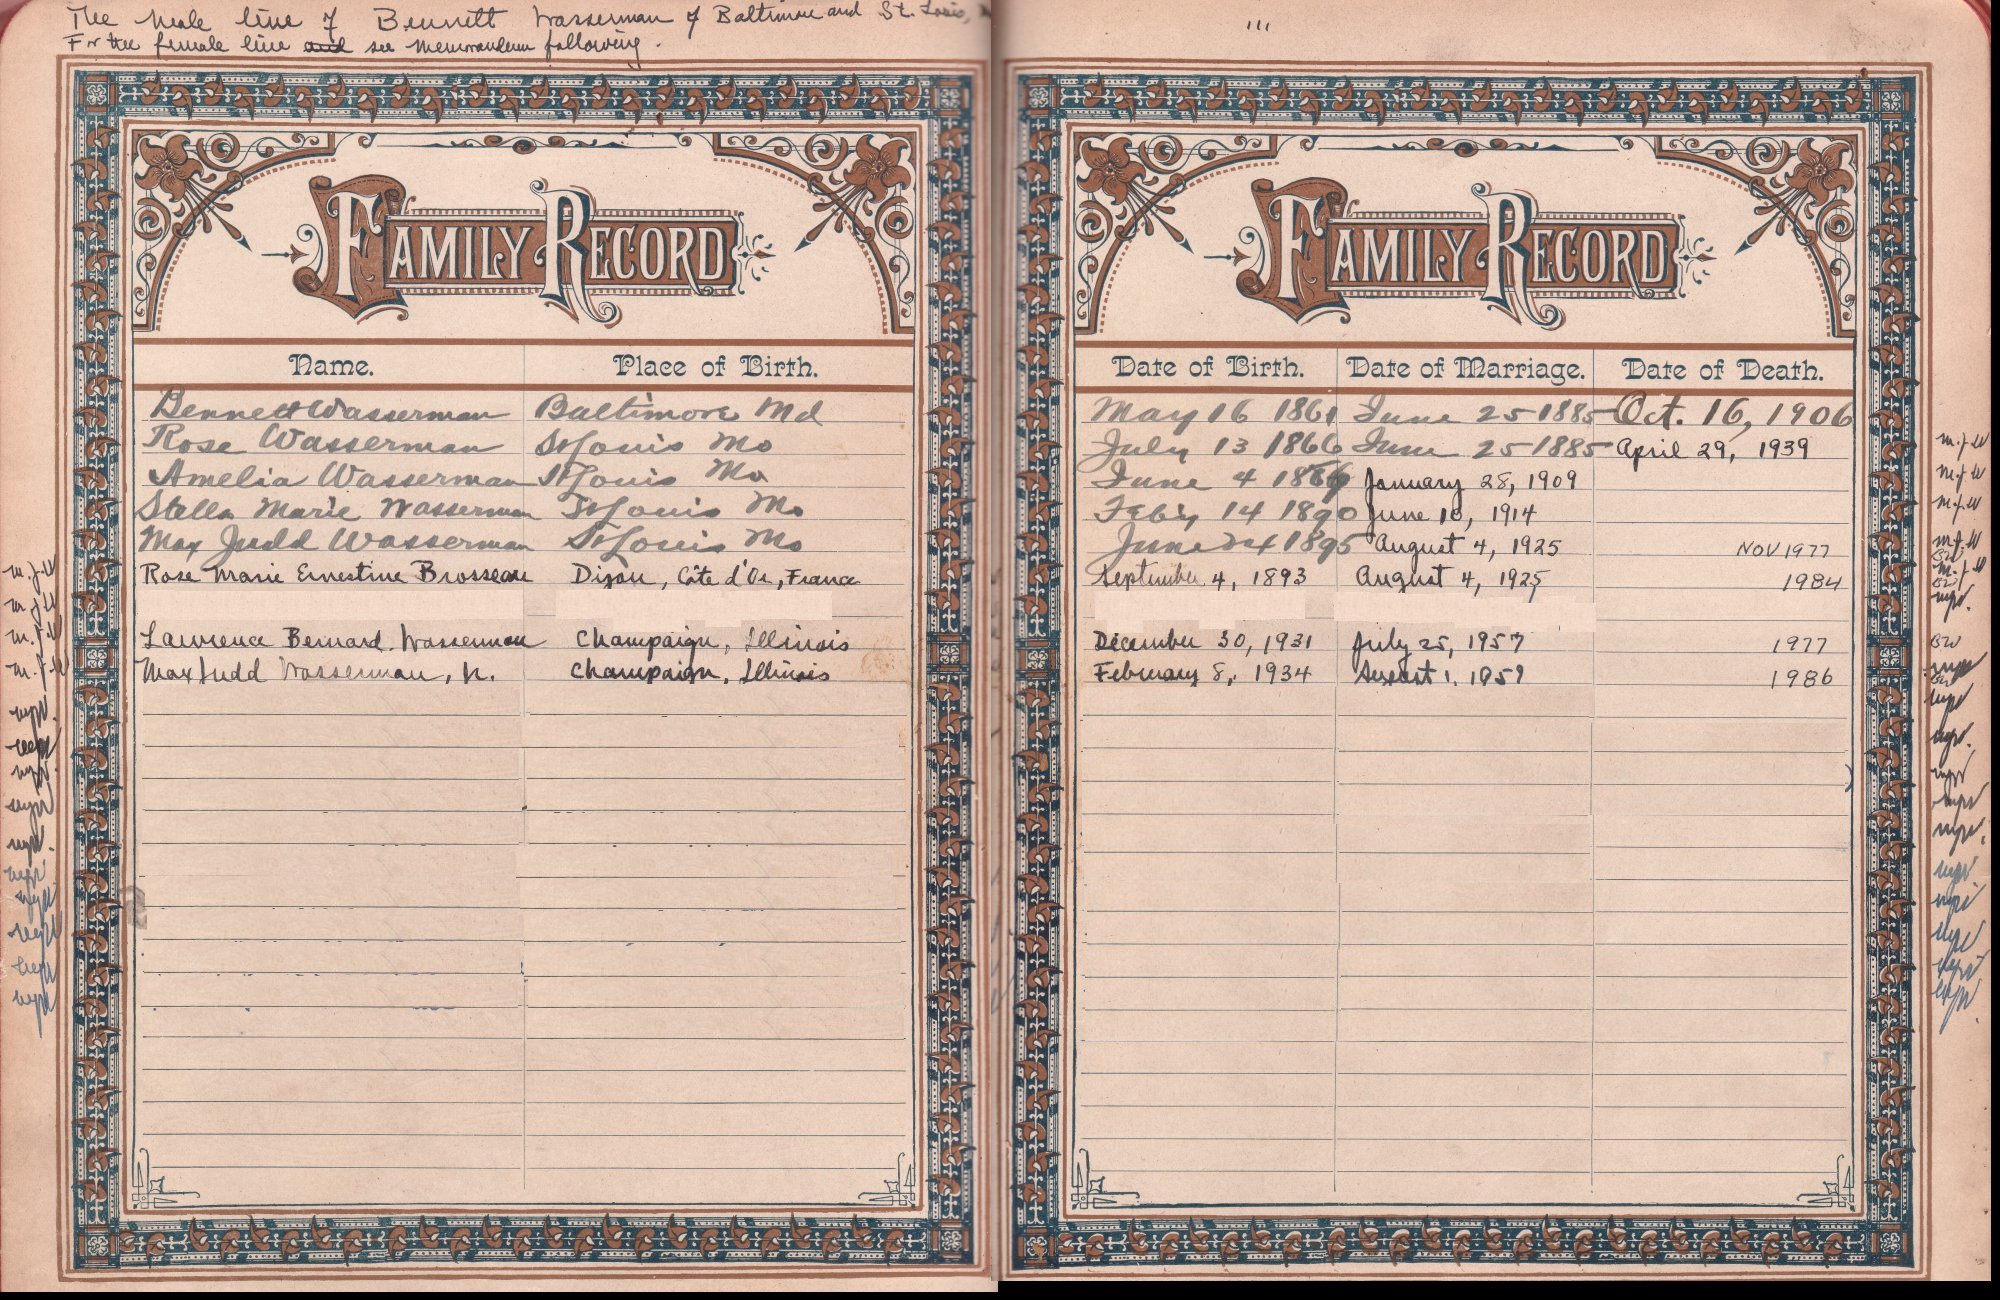 The male line of Bennett Wasserman of Baltimore and St. Louis,
For the female line and see memorandum following.
111
FAMILY RECORD
FAMILY RECORD
Name. Place of Birth.
Date of Birth. Date of Marriage. Date of Death.
Bennett Wasserman Baltimore Md May 16 1861 June 25 1885 Oct. 16, 1906
Rose Wasserman St Louis Mo July 13 1866 June 25 1885 April 29, 1939 m.j.w
Amelia Wasserman St Louis Mo June 4 January 28, 1909 m.j.w
Stella Marie Wasserman St Louis Mo Feby 14 1890 June 10, 1914 m.j.w
Max Judd Wasserman St Louis Mo June 24 1895 August 4, 1925 NOV 1977 m.j.w
m.j.w Rose Marie Ernestine Brosseau Dijon, Côte d'Or, France September 4, 1893 August 4, 1925 1984 m.j.w
m.j.w
m.j.w Lawrence Bernard Wasserman Champaign, Illinois December 30, 1931 July 25, 1957 1977 BW
m.j.w Max Judd Wasserman, Jr. Champaign, Illinois February 8, 1934 August 1, 1959 1986